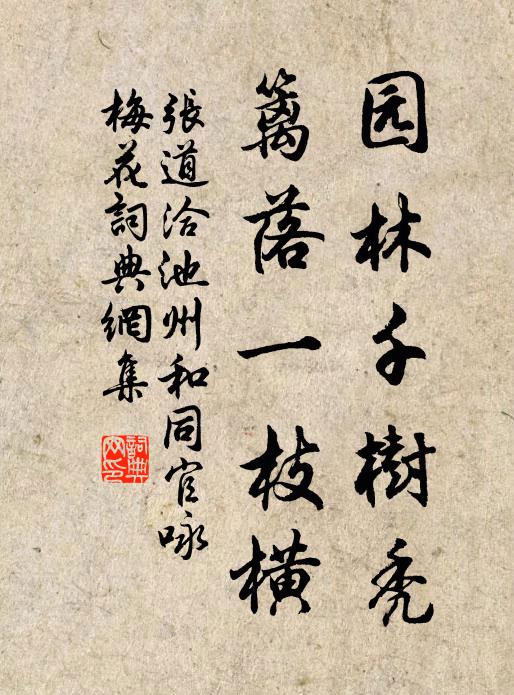 园林千樹秃
篱落一枝橫
張道洽池州和同官咏
梅花詞典網集
詞典网印